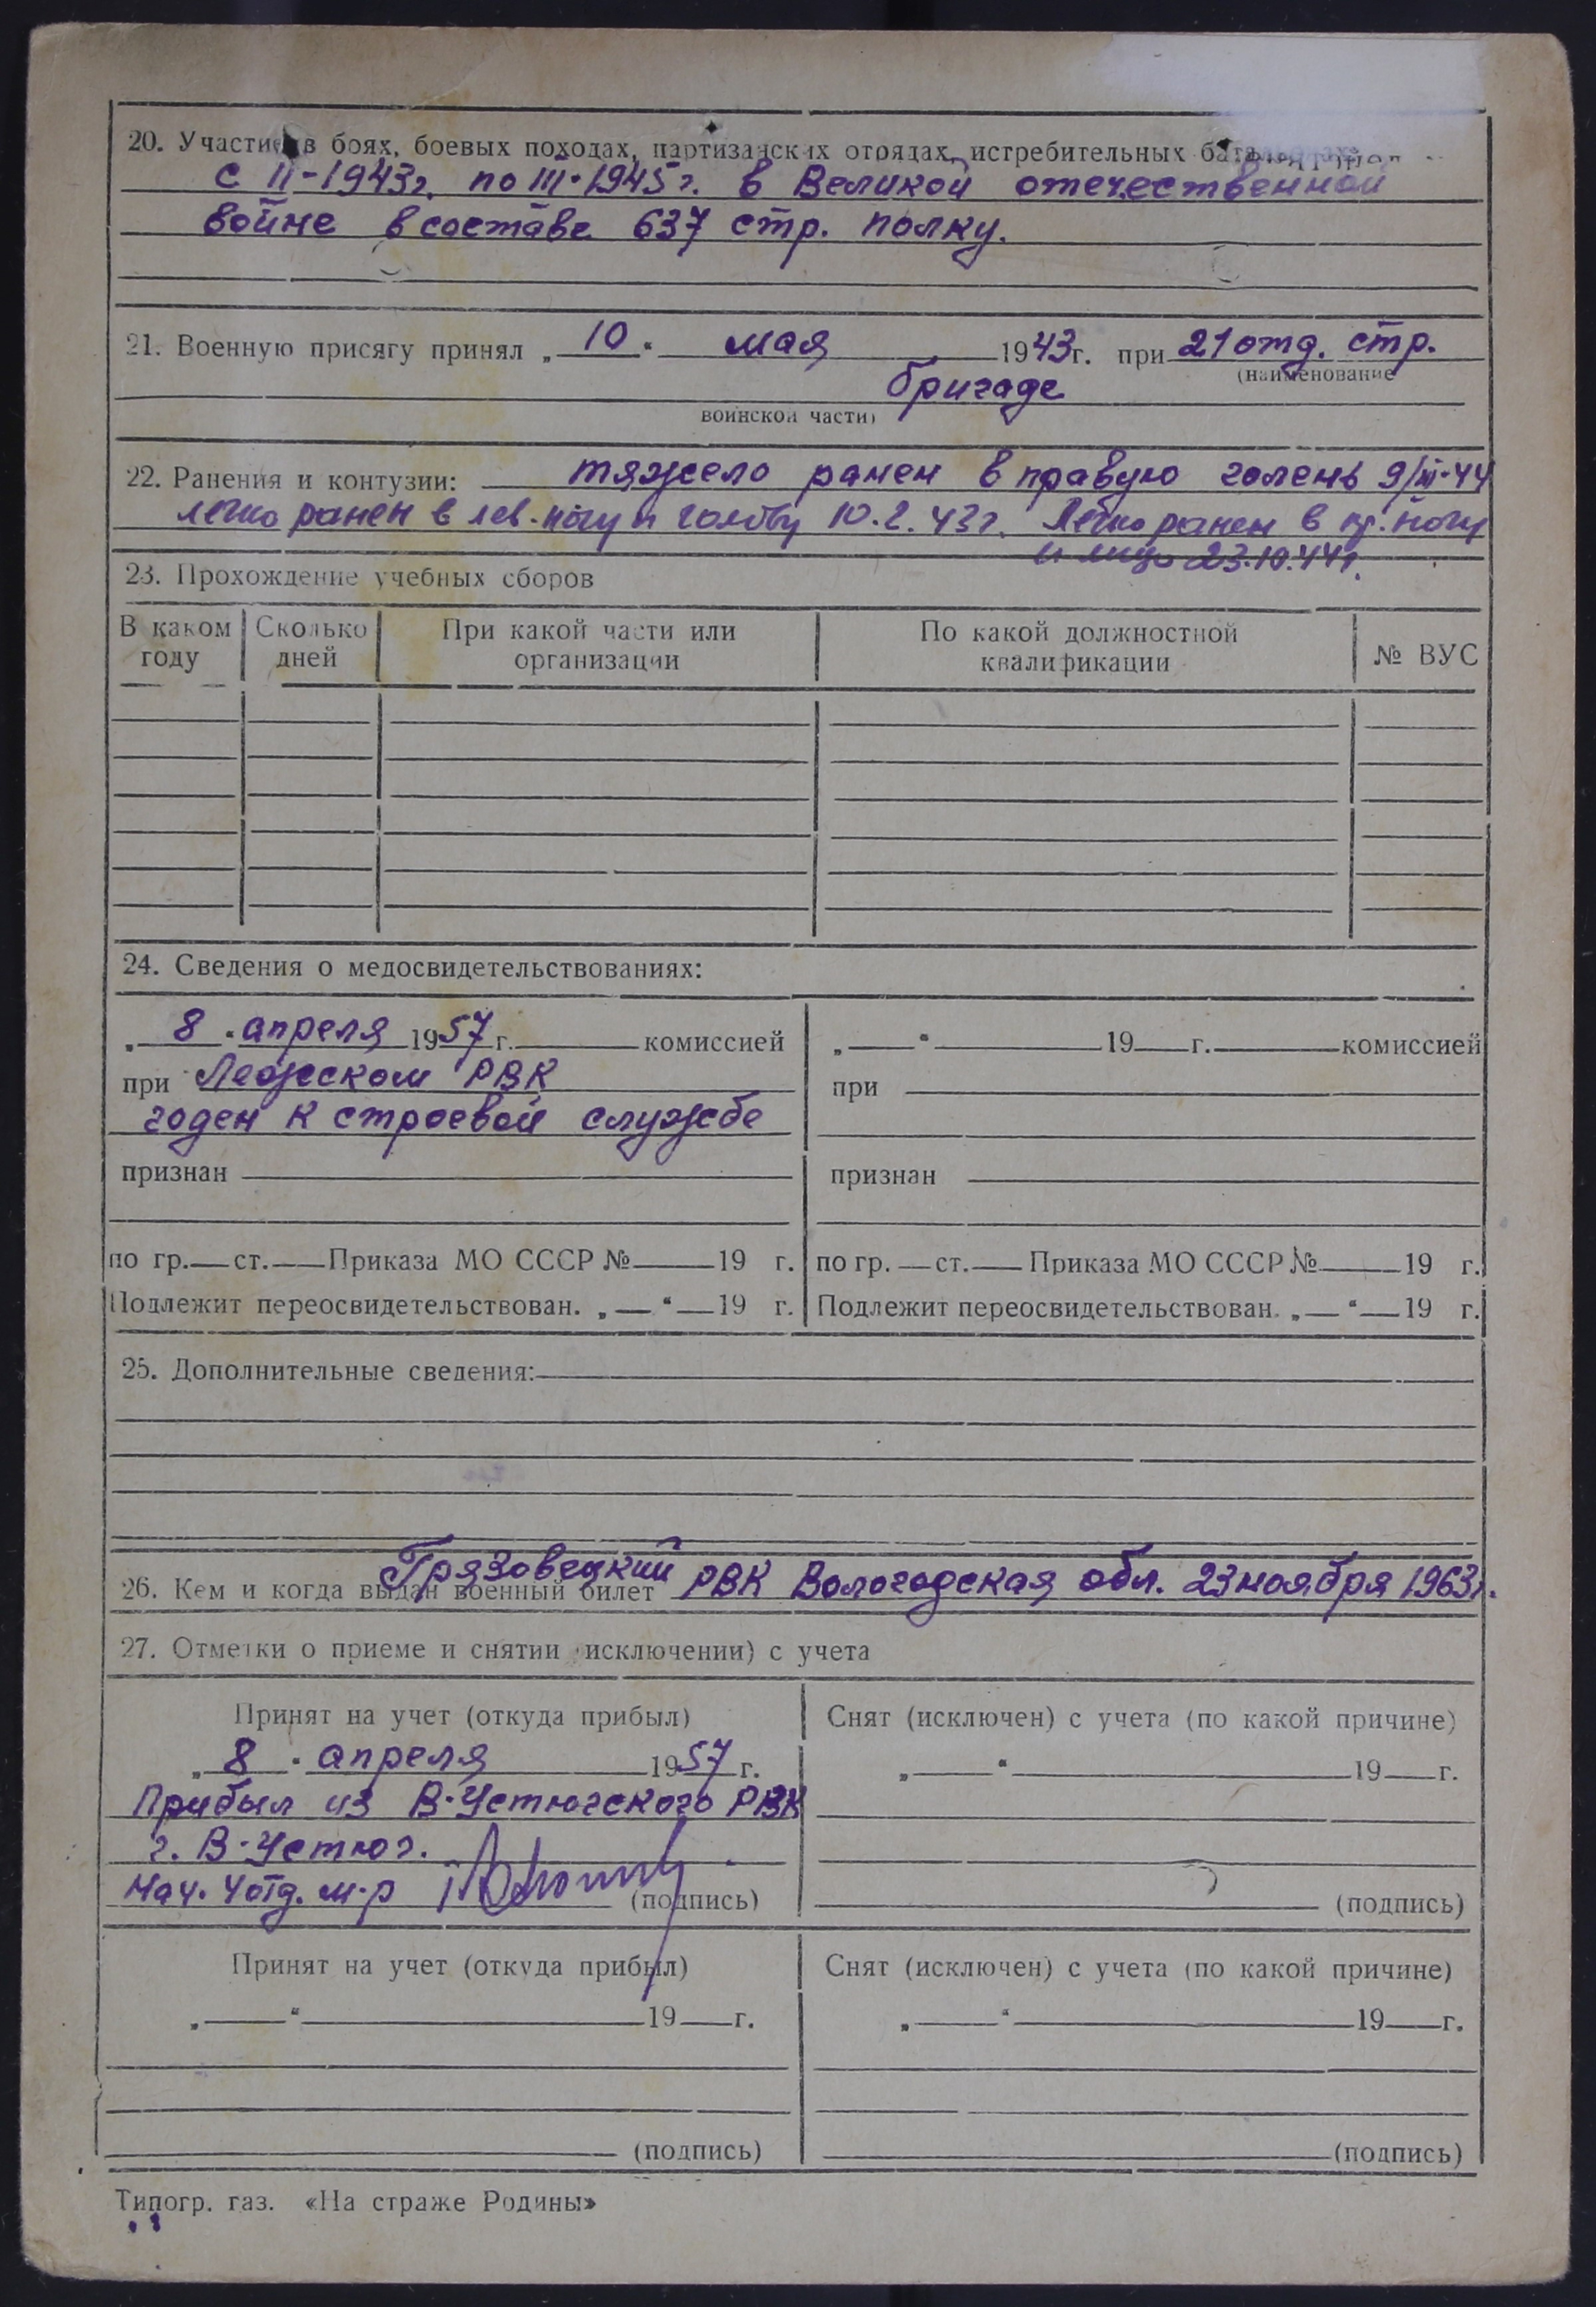 20. Участие в боях, боевых походах, партизанских отрядах, истребительных
с II-1943г. по III-1945г. в Великой отечественной
войне в составе 637 стр. полку.
21. Военную присягу принял „ 10 “ мая 1943г. при 21 отд. стр.
(наименование
бригаде
воинской части)
22. Ранения и контузии: тяжело ранен в правую голень 9/III-44
легко ранен в лев. ногу и голову 10.2.43г. Легко ранен в пр. ногу
и лицо 23.10.44г.
23. Прохождение учебных сборов
В каком году Сколько дней При какой части или организации По какой должностной квалификации № ВУС
24. Сведения о медосвидетельствованиях:
„ 8 “ апреля 1957г. комиссией
при Лежском РВК
годен к строевой службе
признан
по гр. ст. Приказа МО СССР № 19 г.
Подлежит переосвидетельствован. „ “ 19 г.
„ “ 19 г. комиссией
при
признан
по гр. ст. Приказа МО СССР № 19 г.
Подлежит переосвидетельствован. „ “ 19 г.
25. Дополнительные сведения:
26. Кем и когда выдан военный билет Грязовецкий РВК Вологодская обл. 23 ноября 1963г.
27. Отметки о приеме и снятии (исключении) с учета
Принят на учет (откуда прибыл)
„ 8 “ апреля 1957 г.
Прибыл из В-Устюгского РВК
г. В-Устюг.
Нач. 4 отд. м-р (подпись)
Снят (исключен) с учета (по какой причине)
„ “ 19 г.
(подпись)
Принят на учет (откуда прибыл)
„ “ 19 г.
(подпись)
Снят (исключен) с учета (по какой причине)
„ “ 19 г.
(подпись)
Типогр. газ. «На страже Родины»